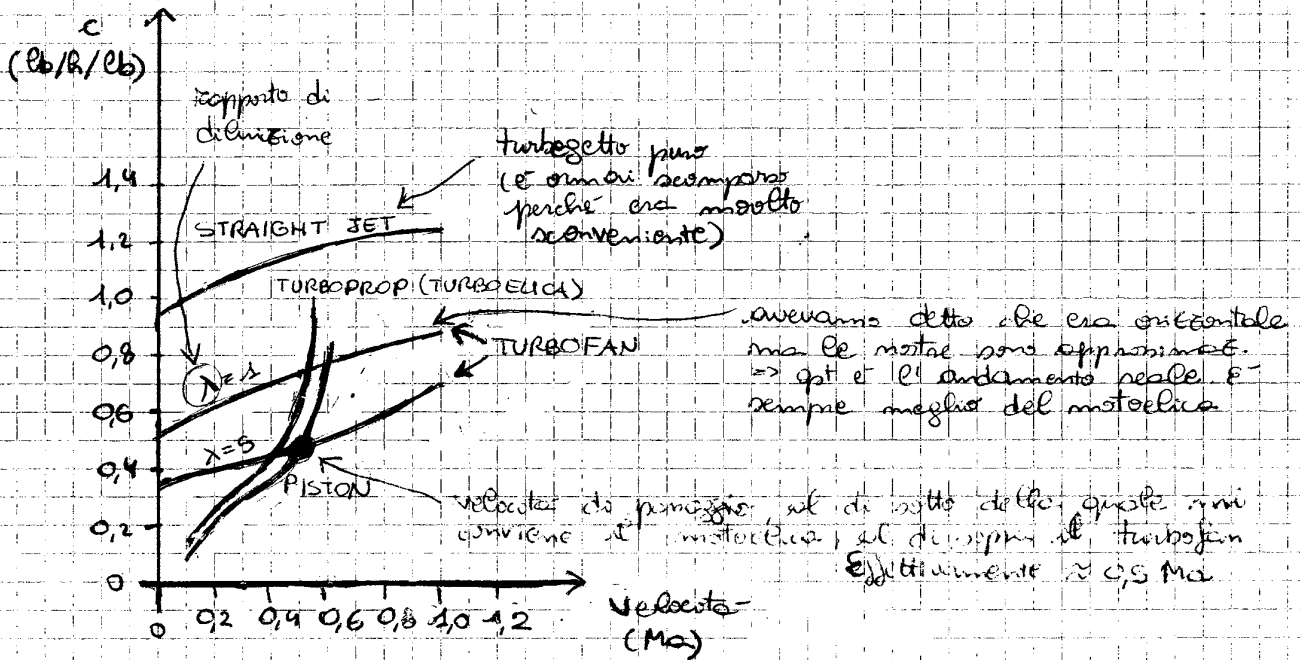 c
(lb/h/lb)
rapporto di
diluizione
turbogetto puro
(è ormai scomparso
perché era molto
sconveniente)
1,4
STRAIGHT JET
1,2
TURBOPROP (TURBOELICA)
1,0
avevamo detto che era orizzontale
ma le nostre sono approssimaz.
=> qst è l'andamento reale. È
sempre meglio del motoelica
0,8
TURBOFAN
λ=1
0,6
λ=5
0,4
PISTON
velocità di passaggio, al di sotto della quale mi
conviene il motoelica, al di sopra il turbofan
Effettivamente ≈ 0,5 Ma
0,2
0
0 0,2 0,4 0,6 0,8 1,0 1,2
Velocità
(Ma)